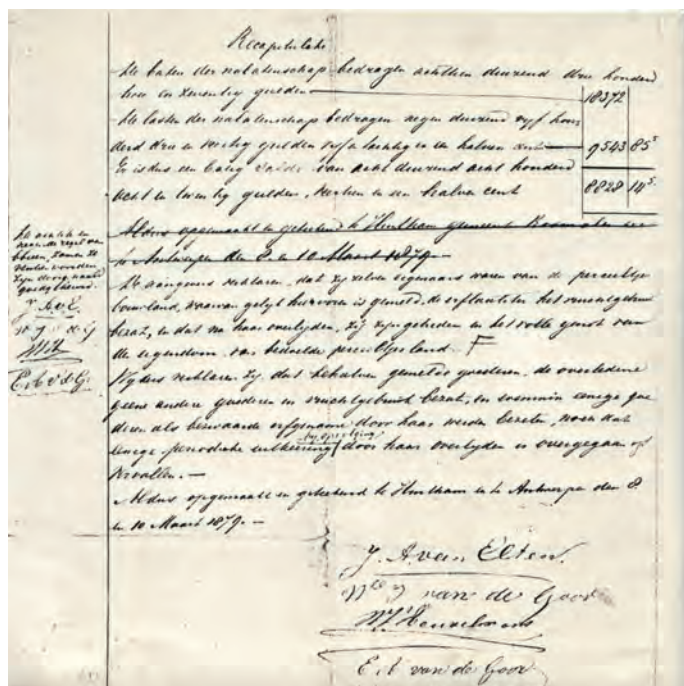 Recapitulatie
De baten der nalatenschap bedragen achttien duizend drie honderd
twee en zeventig gulden 18372
De lasten der nalatenschap bedragen negen duizend vijf hon
derd drie en veertig gulden vijf en tachtig en een halven cent 9543 85⁵
Er is dus een batig saldo van acht duizend acht honderd
acht en twintig gulden, veertien en een halven cent 8828 14⁵
Aldus opgemaakt en geteekend te Hintham gemeente Rosmalen en
te Antwerpen den 8 en 10 Maart 1879.
De aangevers verklaren, dat zij zelven eigenaars waren van de perceeltjes
bouwland, waarvan gelijk hiervoren is gemeld, de erflaatster het vruchtgebruik
bezat, en dat na haar overlijden, zij zijn getreden in het volle genot van
den eigendom van bedoelde perceeltjes land. F
Wijders verklaren zij, dat behalve gemelde goederen, de overledene
geene andere goederen in vruchtgebruik bezat, en evenmin eenige goe
deren als bezwaarde erfgename door haar werden bezeten, noch dat
eenige periodieke uitkeering bij opvolging door haar overlijden is overgegaan of
vervallen.—
Aldus opgemaakt en geteekend te Hintham en te Antwerpen den 8
en 10 Maart 1879.—
De achtste en
negende regel van
boven, zamen
woorden
zijn doorgehaald
goedgekeurd.
J. A. v. E.
W J v d G
M H
E. A. v. d. G.
J. A. van Elten.
van de Goor
M J Heuvelmans
E A van de Goor